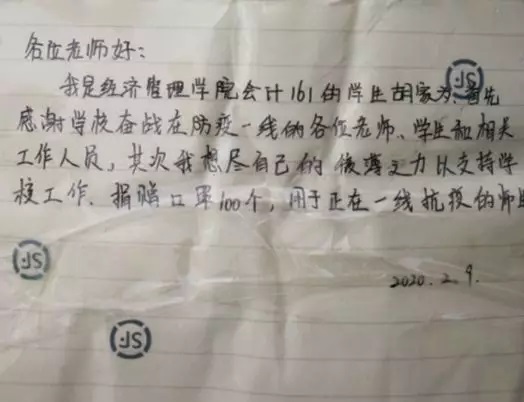 各位老师好：
我是经济管理学院会计161的学生胡家为、首先
感谢学校奋战在防疫一线的各位老师、学生和相关
工作人员，其次我想尽自己的绵薄之力以支持学
校工作、捐赠口罩100个，用于正在一线抗疫的师
2020.2.9.
JS
JS
JS